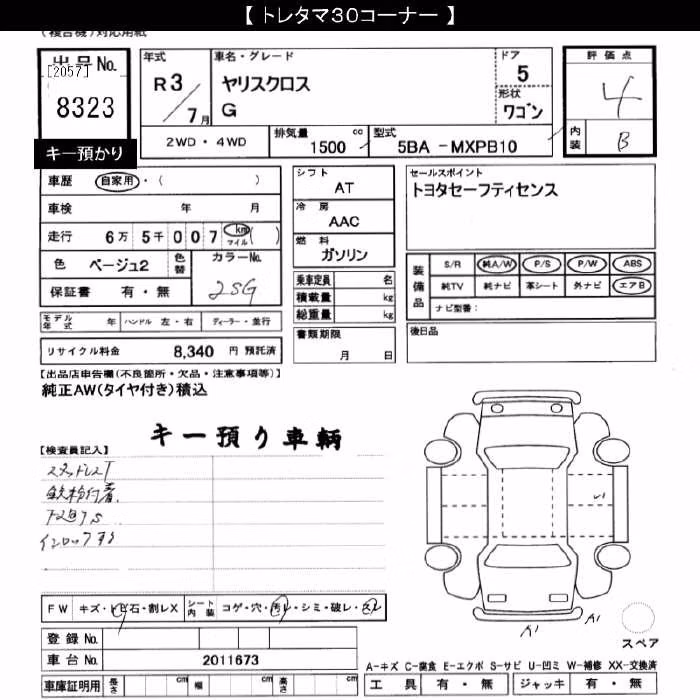 【 トレタマ30コーナー 】
(複合機)対応用紙
出品No.
[2057]
8323
キー預かり
年式
R3/7月
車名・グレード
ヤリスクロス
G
ドア
5
形状
ワゴン
評価点
4
内装
B
2WD・4WD
排気量
1500 cc
型式
5BA -MXPB10
車歴 自家用・( )
車検 年 月
走行 6万 5千 007 km マイル ( )
色 ベージュ2 色替
カラーNo.
2SG
保証書 有・無
モデル年式 年 ハンドル 左・右 ディーラー・並行
リサイクル料金 8,340 円 預託済
シフト
AT
冷房
AAC
燃料
ガソリン
乗車定員 名
積載量 kg
総重量 kg
書類期限
月 日
セールスポイント
トヨタセーフティセンス
装備品
S/R 純A/W P/S P/W ABS
純TV 純ナビ 革シート 外ナビ エアB
ナビ型番:
後日品
【出品店申告欄(不良箇所・欠品・注意事項等)】
純正AW(タイヤ付き)積込
キー預り車輌
【検査員記入】
スタッドレスT
鉄粉付着
下廻りS
インロックキー
FW キズ・トビ石・割レX
シート内装 コゲ・穴・汚レ・シミ・破レ・スレ
登録No.
車台No. 2011673
車庫証明用 長さ cm 幅 cm 高さ cm
A1
A1
スペア
A-キズ C-腐食 E-エクボ S-サビ U-凹ミ W-補修 XX-交換済
工具 有・無 ジャッキ 有・無